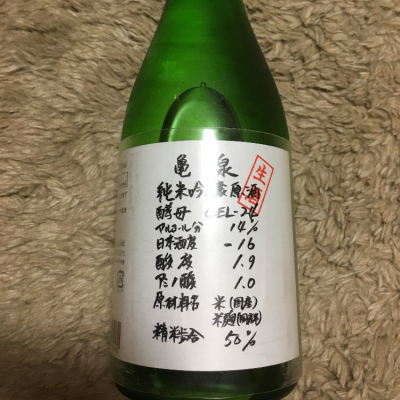 亀泉
生酒
純米吟醸原酒
酵母 CEL-24
アルコール分 14%
日本酒度 -16
酸度 1.9
アミノ酸 1.0
原材料名 米(国産)
米麹(国産米)
精米歩合 50%